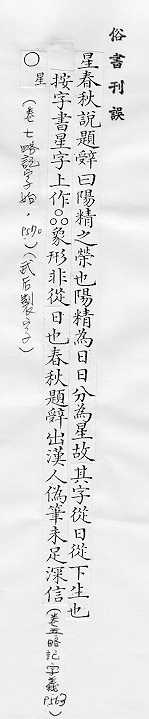 俗書刊誤
星春秋說題辭曰陽精之榮也陽精為日日分為星故其字從日從下生也
按字書星字上作○○○象形非從日也春秋題辭出漢人偽筆未足深信(卷五略記字義 P.563)
○星(卷七略記字始,P.570)(武后製字)